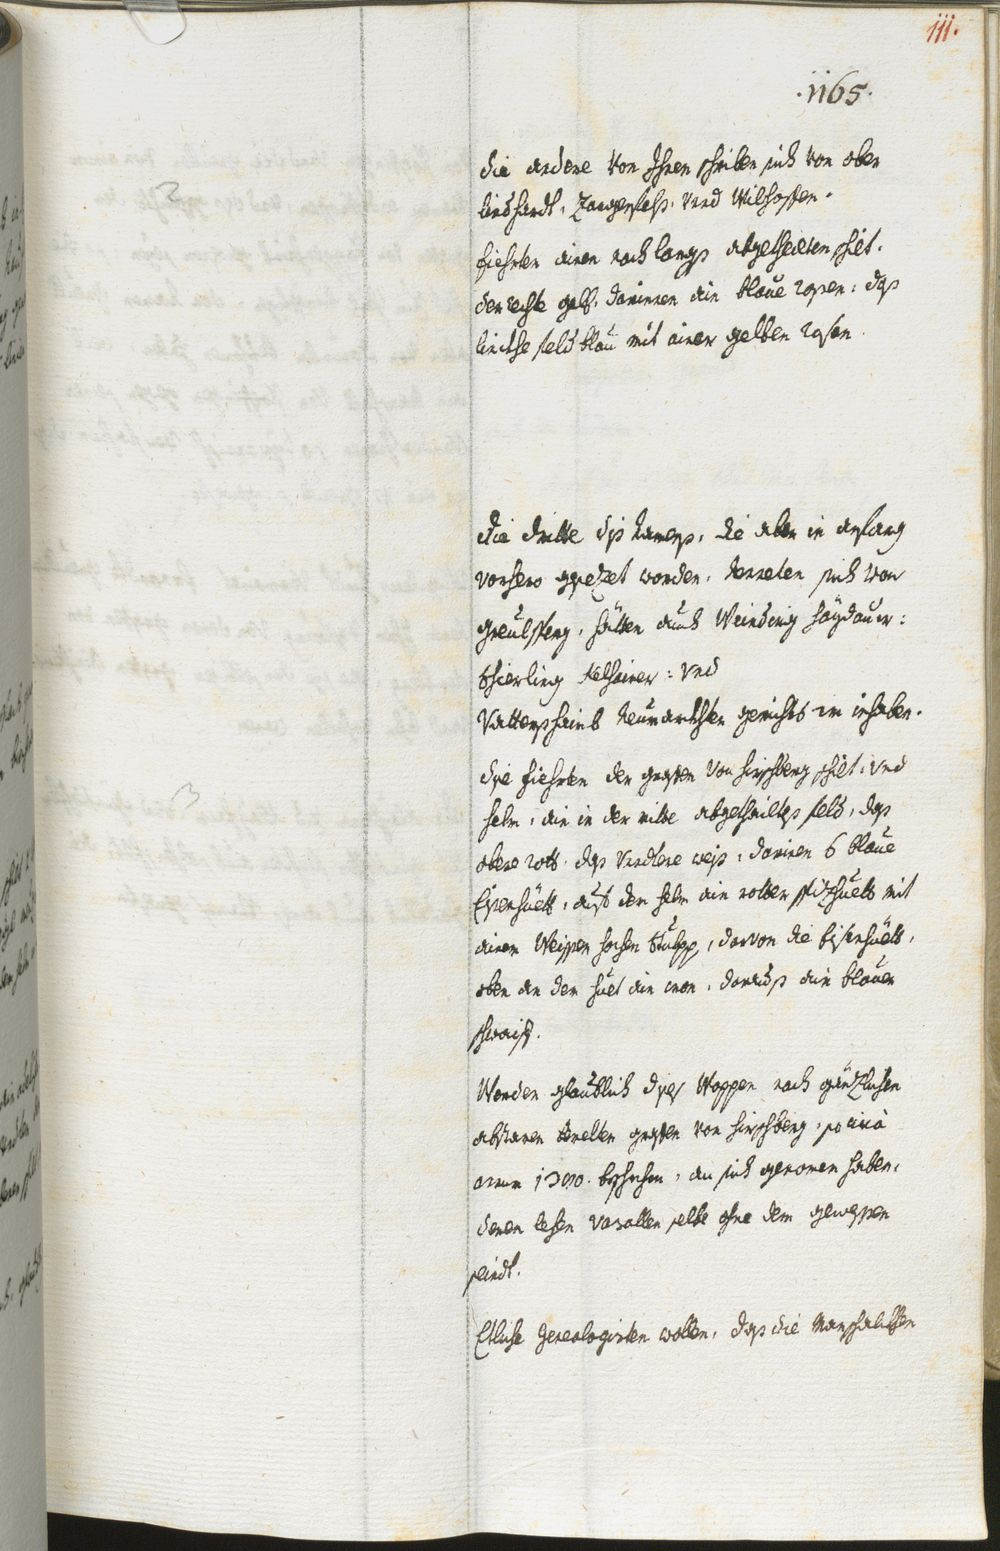 111.
·1165·
die andere von Ihnen schriben sich von ober
lindhardt, Zangenfelss, vnd Wilhoffen.
fiehrten ainen nach langs abgetheilten schilt.
der rechte gelb, darinnen ain blaue rosen: dass
linckhe feld blau mit ainer gelben rosen.
die dritte diss namens, die aber in anfang
vorhero gesezet worden, nenneten sich von
hätten auch haydauer:
Schierling Kelhaimer: vnd
neumarckhten gerichts inhaben.
dise fiehrten der grafen von hirschberg schilt: vnd
helm, ain in der mitte abgetheiltes feld, dass
obere roth. dass vndtere weiss, darinen 6 blaue
Eysenhüett, auf dem helm ain rotter spizhuett mit
ainem Weissen hochen stulpp, darvon die Eisenhüett,
oben an dem huet ain cron, darauss ain blauer
schwaif.
Werden glaublich dises Wappen nach gänzlichen
absterben grafen von hirschberg, so circa
annum geschehen, an sich genomen haben,
deren lehen vasallen selbe ohne dem gewessen
seindt.
Etliche genealogisten wollen, dass die